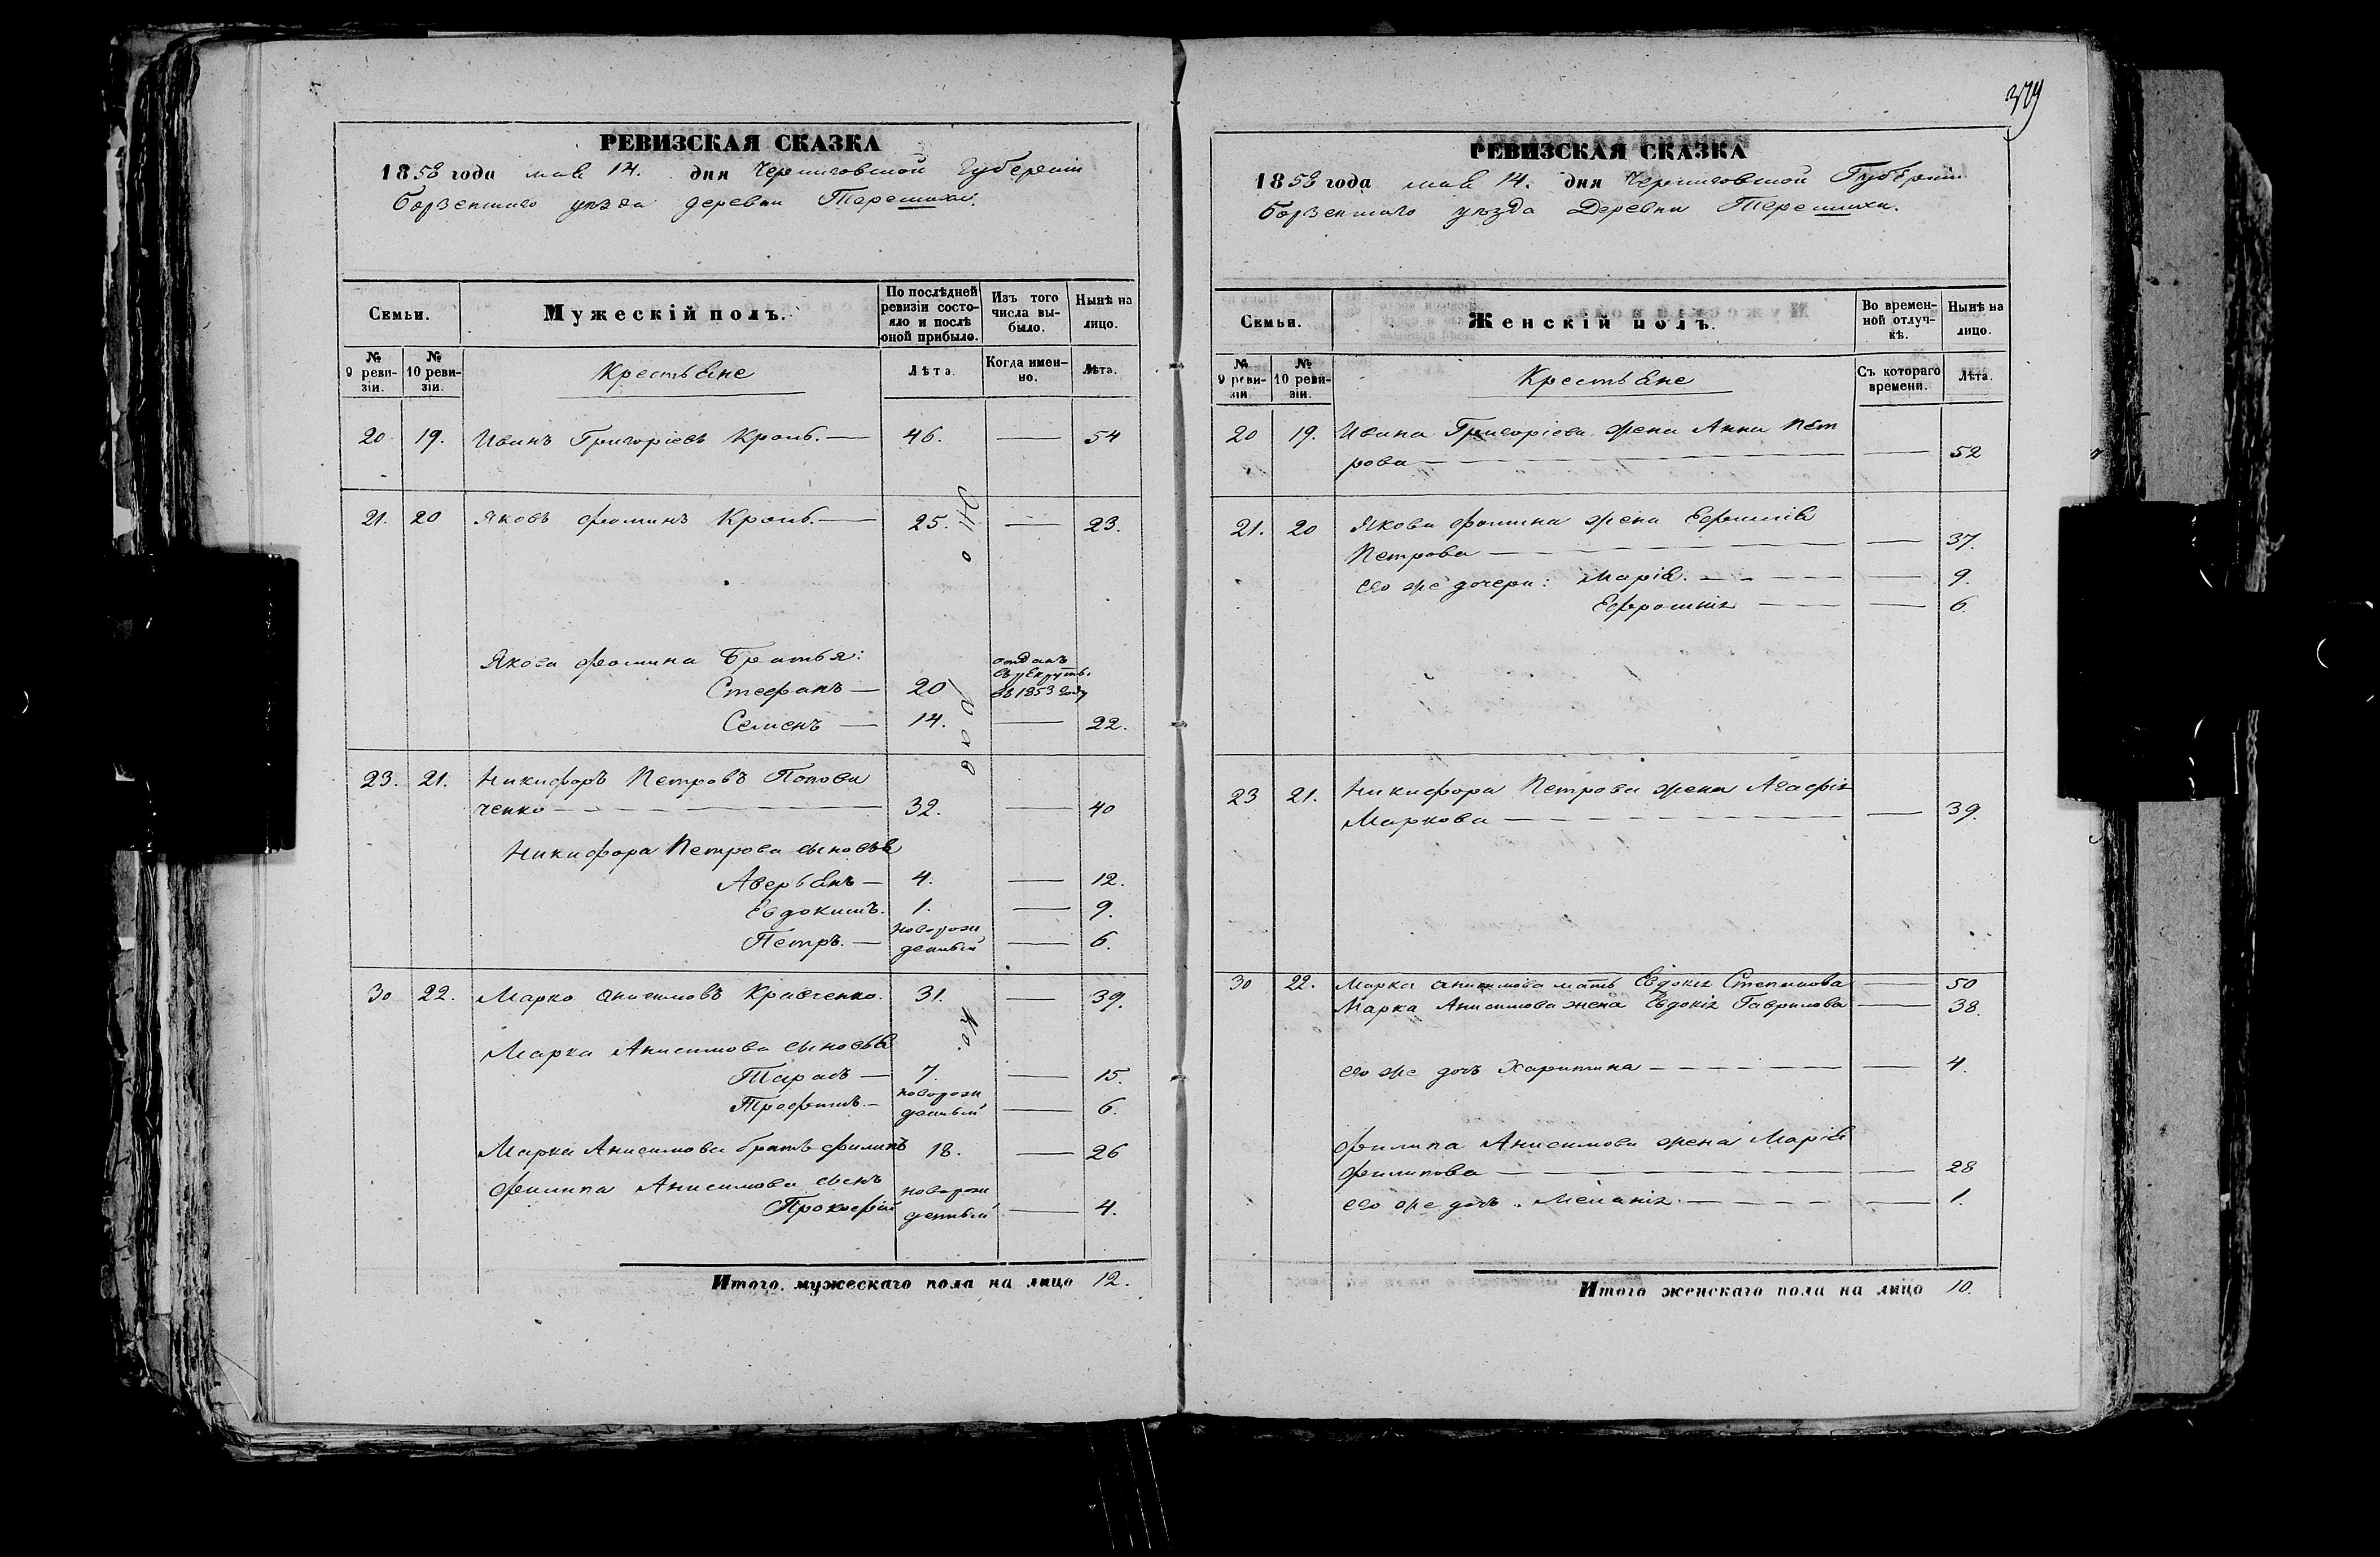 РЕВИЗСКАЯ СКАЗКА
1858 года мая 14. дня Черниговской Губерніи
Борзенскаго уѣзда деревни Терешихи.
Семьи.
Мужескій полъ.
По послѣдней ревизіи состояло и послѣ оной прибыло.
Изъ того числа выбыло.
Нынѣ на лицо.
№ 9 ревизіи.
№ 10 ревизіи.
Крестьяне
Лѣта.
Когда именно.
Лѣта.
20 19. Иванъ Григоріевъ Кропъ. — 46. — 54
21. 20 Яковъ Фоминъ Кропъ. — 25. — 23.
Якова Фомина Братья:
Стефанъ — 20 отданъ въ рекруты въ 1853 году
Семенъ — 14. — 22.
23. 21. Никифоръ Петровъ Попови
ченко — 32. — 40
Никифора Петрова сыновья
Аверьянъ — 4. — 12.
Евдокимъ. 1. — 9.
Петръ. — новорожденный — 6.
30 22. Марко Анисимовъ Кравченко. 31. — 39.
Марка Анисимова сыновья
Тарасъ — 7. — 15.
Трофимъ. — новорожденный — 6.
Марка Анисимова братъ Филипъ 18. — 26
Филипа Анисимова сынъ
Прокофій новорожденный — 4.
Итого мужескаго пола на лицо 12.
РЕВИЗСКАЯ СКАЗКА
1858 года мая 14. дня Черниговской Губерніи
Борзенскаго уѣзда Деревни Терешихи.
Семьи.
Женскій полъ.
Во временной отлучкѣ.
Нынѣ на лицо.
№ 9 ревизіи.
№ 10 ревизіи.
Крестьяне
Съ котораго времени.
Лѣта.
20 19. Ивана Григоріева жена Анна Пет
рова — — 52
21. 20 Якова Фомина жена Ефимія
Петрова — — 37.
его же дочери: Марія. — — 9.
Ефросинія — — 6.
23 21. Никифора Петрова жена Агафія
Маркова — — 39.
30 22. Марка Анисимова мать Евдокія Степанова — 50
Марка Анисимова жена Евдокія Гаврилова — 38.
его же дочь Харитина — — 4.
Филипа Анисимова жена Марія
Филипова — — 28
его же дочь. Меланія — — 1.
Итого женскаго пола на лицо 10.